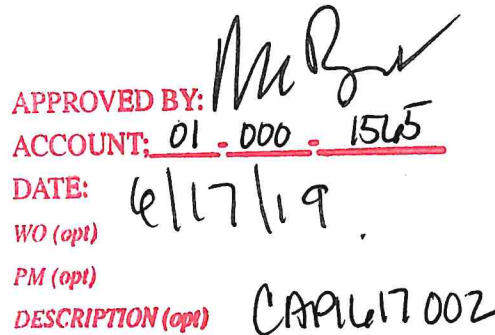 APPROVED BY:
ACCOUNT: 01 - 000 - 1565
DATE: 6/17/19
WO (opt)
PM (opt)
DESCRIPTION (opt) CAP1617002